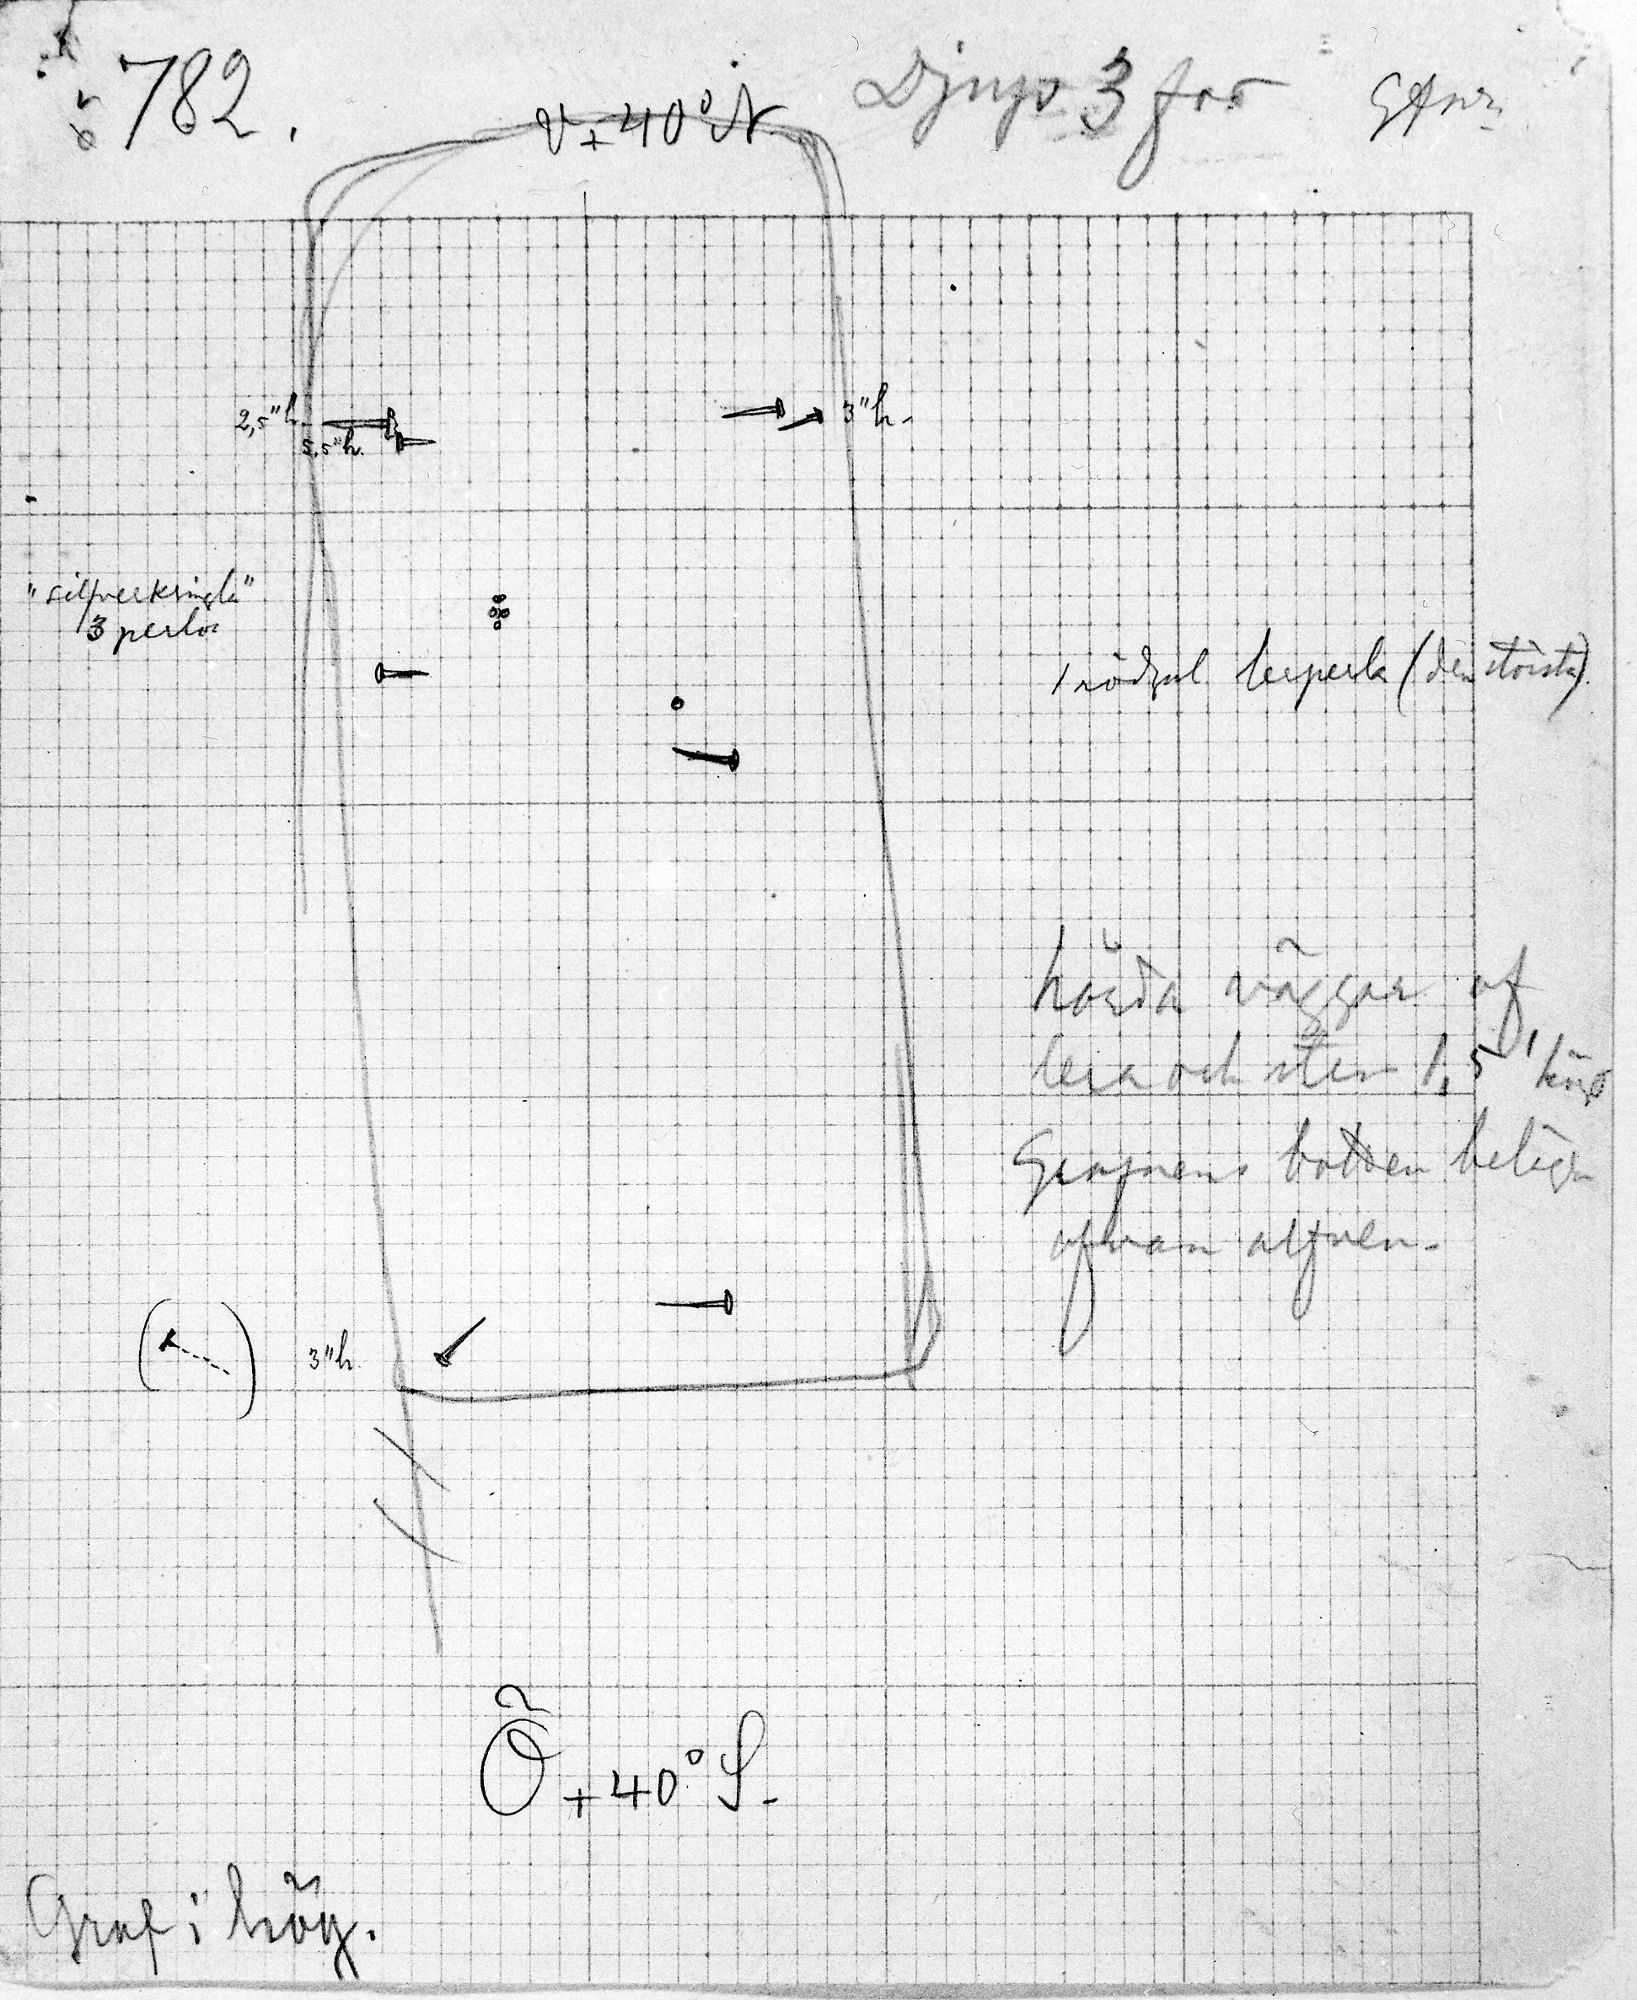 782.
V + 40° N
Djup 3 fot
2,5" h.
5,5" h.
3" h.
"silfverkringla"
3 perlor
1 rödgul lerperla (den största).
hårda väggar af
lera och sten 1,5'
Grafvens botten belägen
ofvan alfven.
3" h.
Ö + 40° S.
Graf i hög.